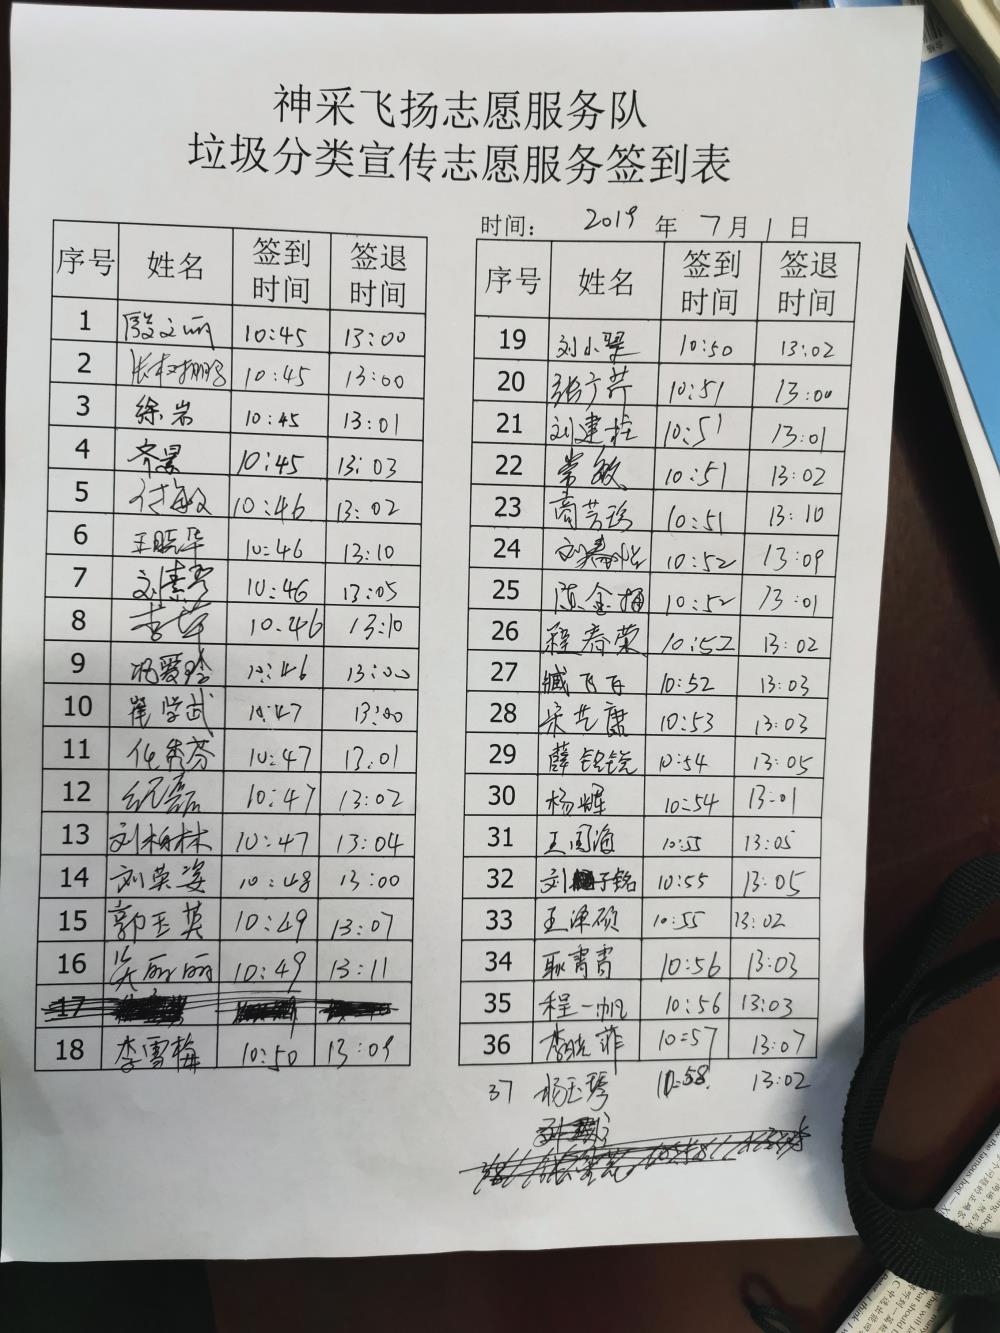 神采飞扬志愿服务队
垃圾分类宣传志愿服务签到表
时间： 2019 年 7月1日
序号 姓名 签到时间 签退时间
1 殷文丽 10:45 13:00
2 10:45 13:00
3 徐岩 10:45 13:01
4 齐景 10:45 13:03
5 付敏 10:46 13:02
6 王晓华 10:46 13:10
7 刘素琴 10:46 13:05
8 李萍 10:46 13:10
9 巩爱玲 10:46 13:00
10 崔学武 10:47 13:00
11 任秀芬 10:47 13:01
12 纪磊 10:47 13:02
13 刘柏林 10:47 13:04
14 刘英姿 10:48 13:00
15 郭玉英 10:49 13:07
16 吴丽丽 10:49 13:11
17
18 李雪梅 10:50 13:09
序号 姓名 签到时间 签退时间
19 刘小翠 10:50 13:02
20 张广芹 10:51 13:00
21 刘建柱 10:51 13:01
22 常敏 10:51 13:02
23 商芳珍 10:51 13:10
24 10:52 13:09
25 陈金梅 10:52 13:01
26 程春荣 10:52 13:02
27 臧飞飞 10:52 13:03
28 10:53 13:03
29 薛锐锐 10:54 13:05
30 杨辉 10:54 13:01
31 王国海 10:55 13:05
32 刘子铭 10:55 13:05
33 王泽硕 10:55 13:02
34 耿霄霄 10:56 13:03
35 程一帆 10:56 13:03
36 李晓菲 10:57 13:07
37 杨玉琴 10:58 13:02